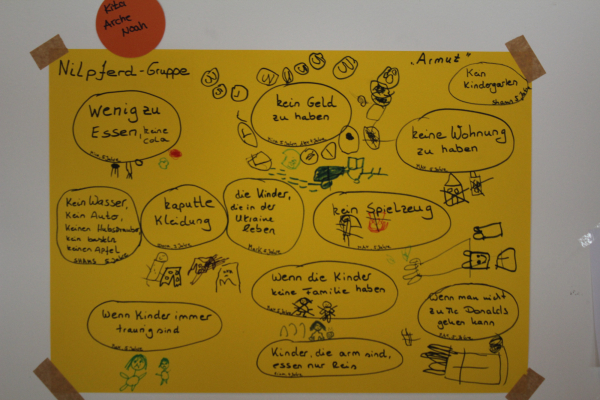 Kita
Arche
Noah
Nilpferd-Gruppe
"Armut"
Kan
Kindergarten
Wenig zu
Essen, keine
cola
kein Geld
zu haben
keine Wohnung
zu haben
Kein Wasser,
Kein Auto,
keinen Hubschrauber
kein basteln
keinen Apfel
kaputte
Kleidung
die Kinder,
die in der
Ukraine
leben
kein Spielzeug
Wenn die Kinder
keine Familie haben
Wenn man nicht
zu Mc Donalds
gehen kann
Wenn Kinder immer
traurig sind
Kinder, die arm sind,
essen nur Reis